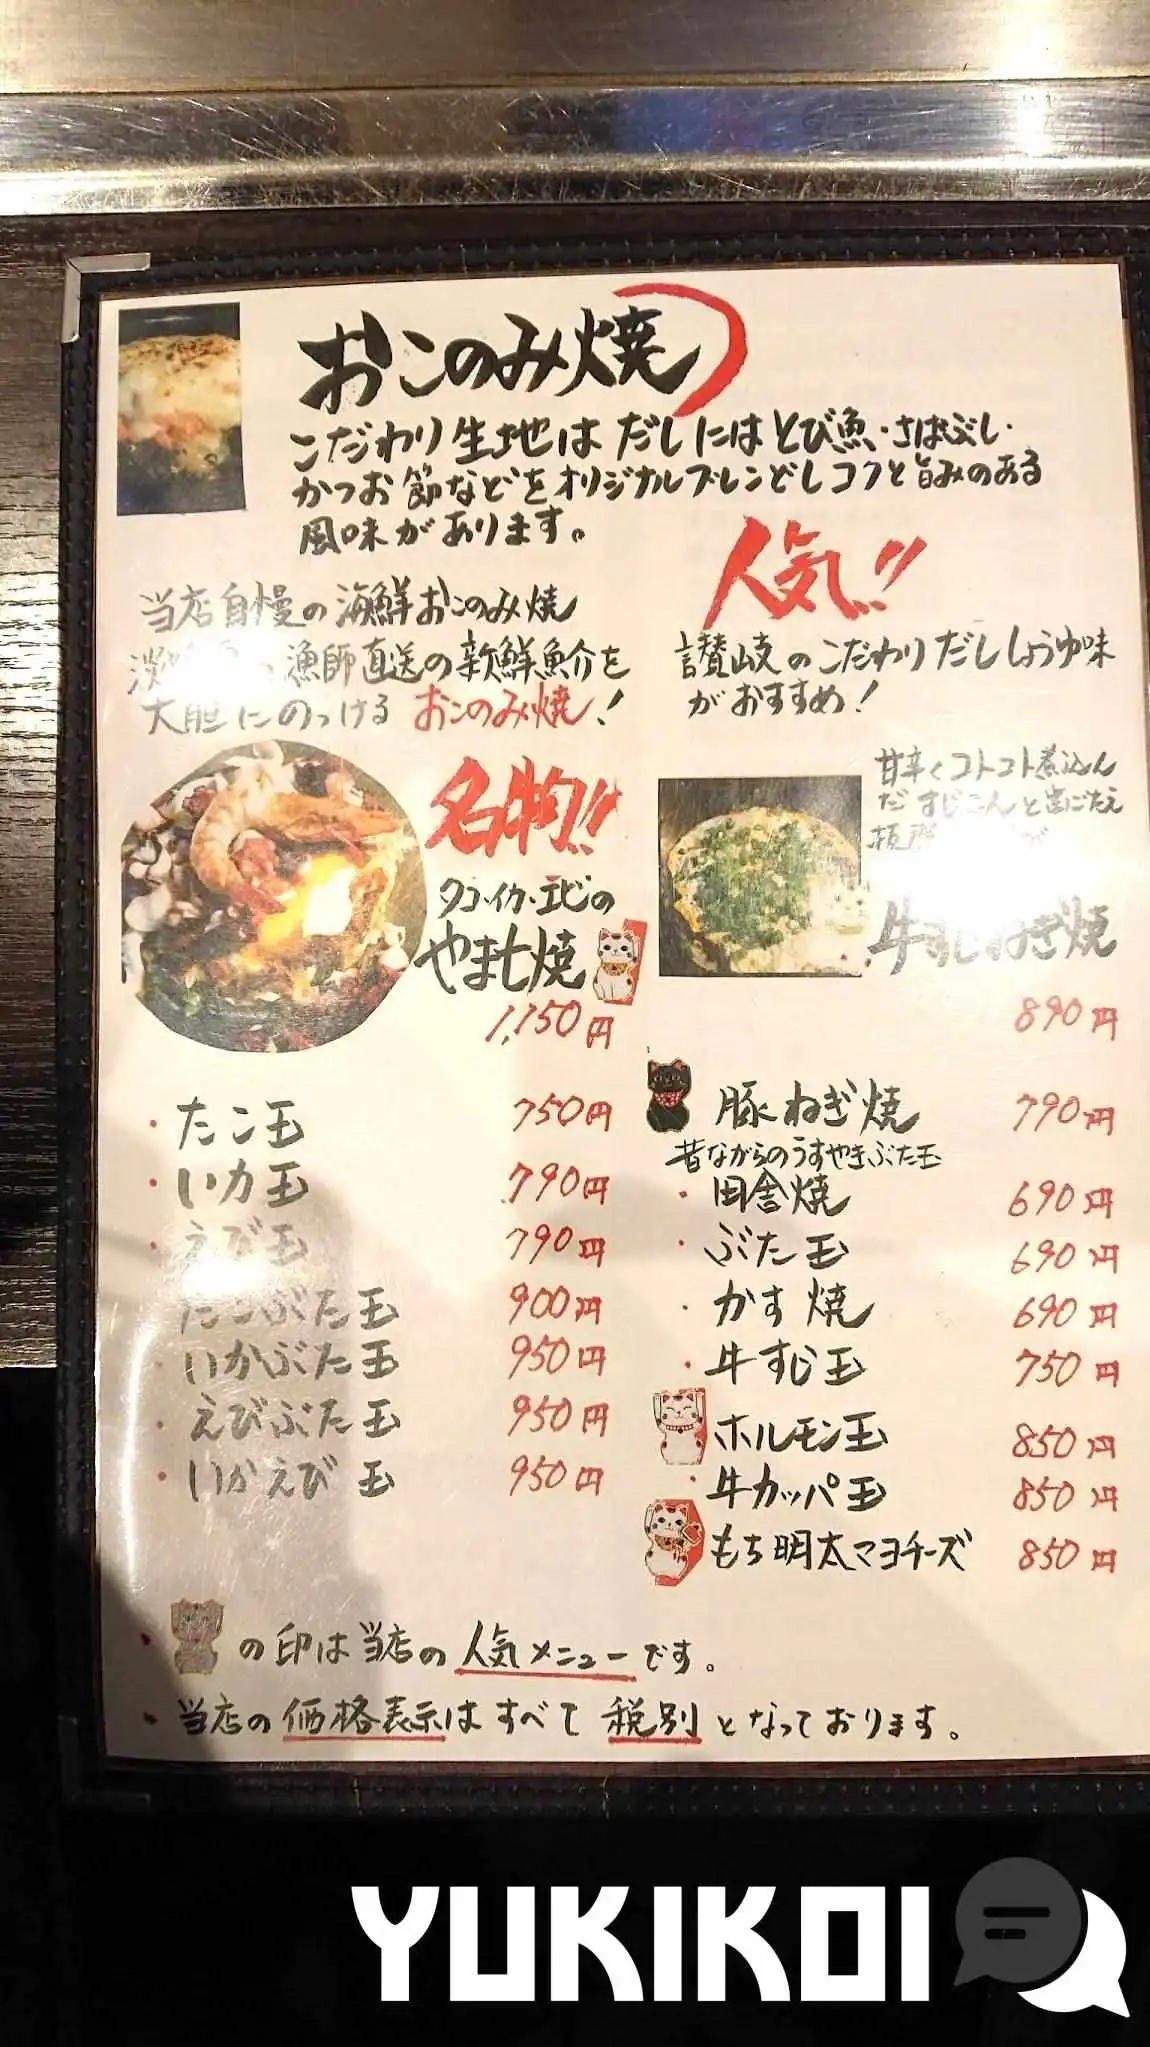 おこのみ焼
こだわり生地は だしには とび魚・さばぶし・
かつお節などをオリジナルブレンどしコクと旨みのある
風味があります。
人気!!
当店自慢の海鮮おこのみ焼
漁師直送の新鮮魚介を
大胆にのっける おこのみ焼!
讃岐のこだわりだししょうゆ味
がおすすめ!
名物!!
タコ・イカ・エビの
やま七焼
1,150円
甘辛くコトコト煮込ん
だすじこんと歯ごたえ
牛すじねぎ焼
890円
・たこ玉 750円
・いカ玉 790円
・えび玉 790円
・たこぶた玉 900円
・いかぶた玉 950円
・えびぶた玉 950円
・いかえび玉 950円
豚ねぎ焼 790円
昔ながらのうすやきぶた玉
・田舎焼 690円
・ぶた玉 690円
・かす焼 690円
・牛すじ玉 750円
ホルモン玉 850円
・牛カッパ玉 850円
もち明太マヨチーズ 850円
・の印は当店の人気メニューです。
・当店の価格表示はすべて税別となっております。
YUKIKOI